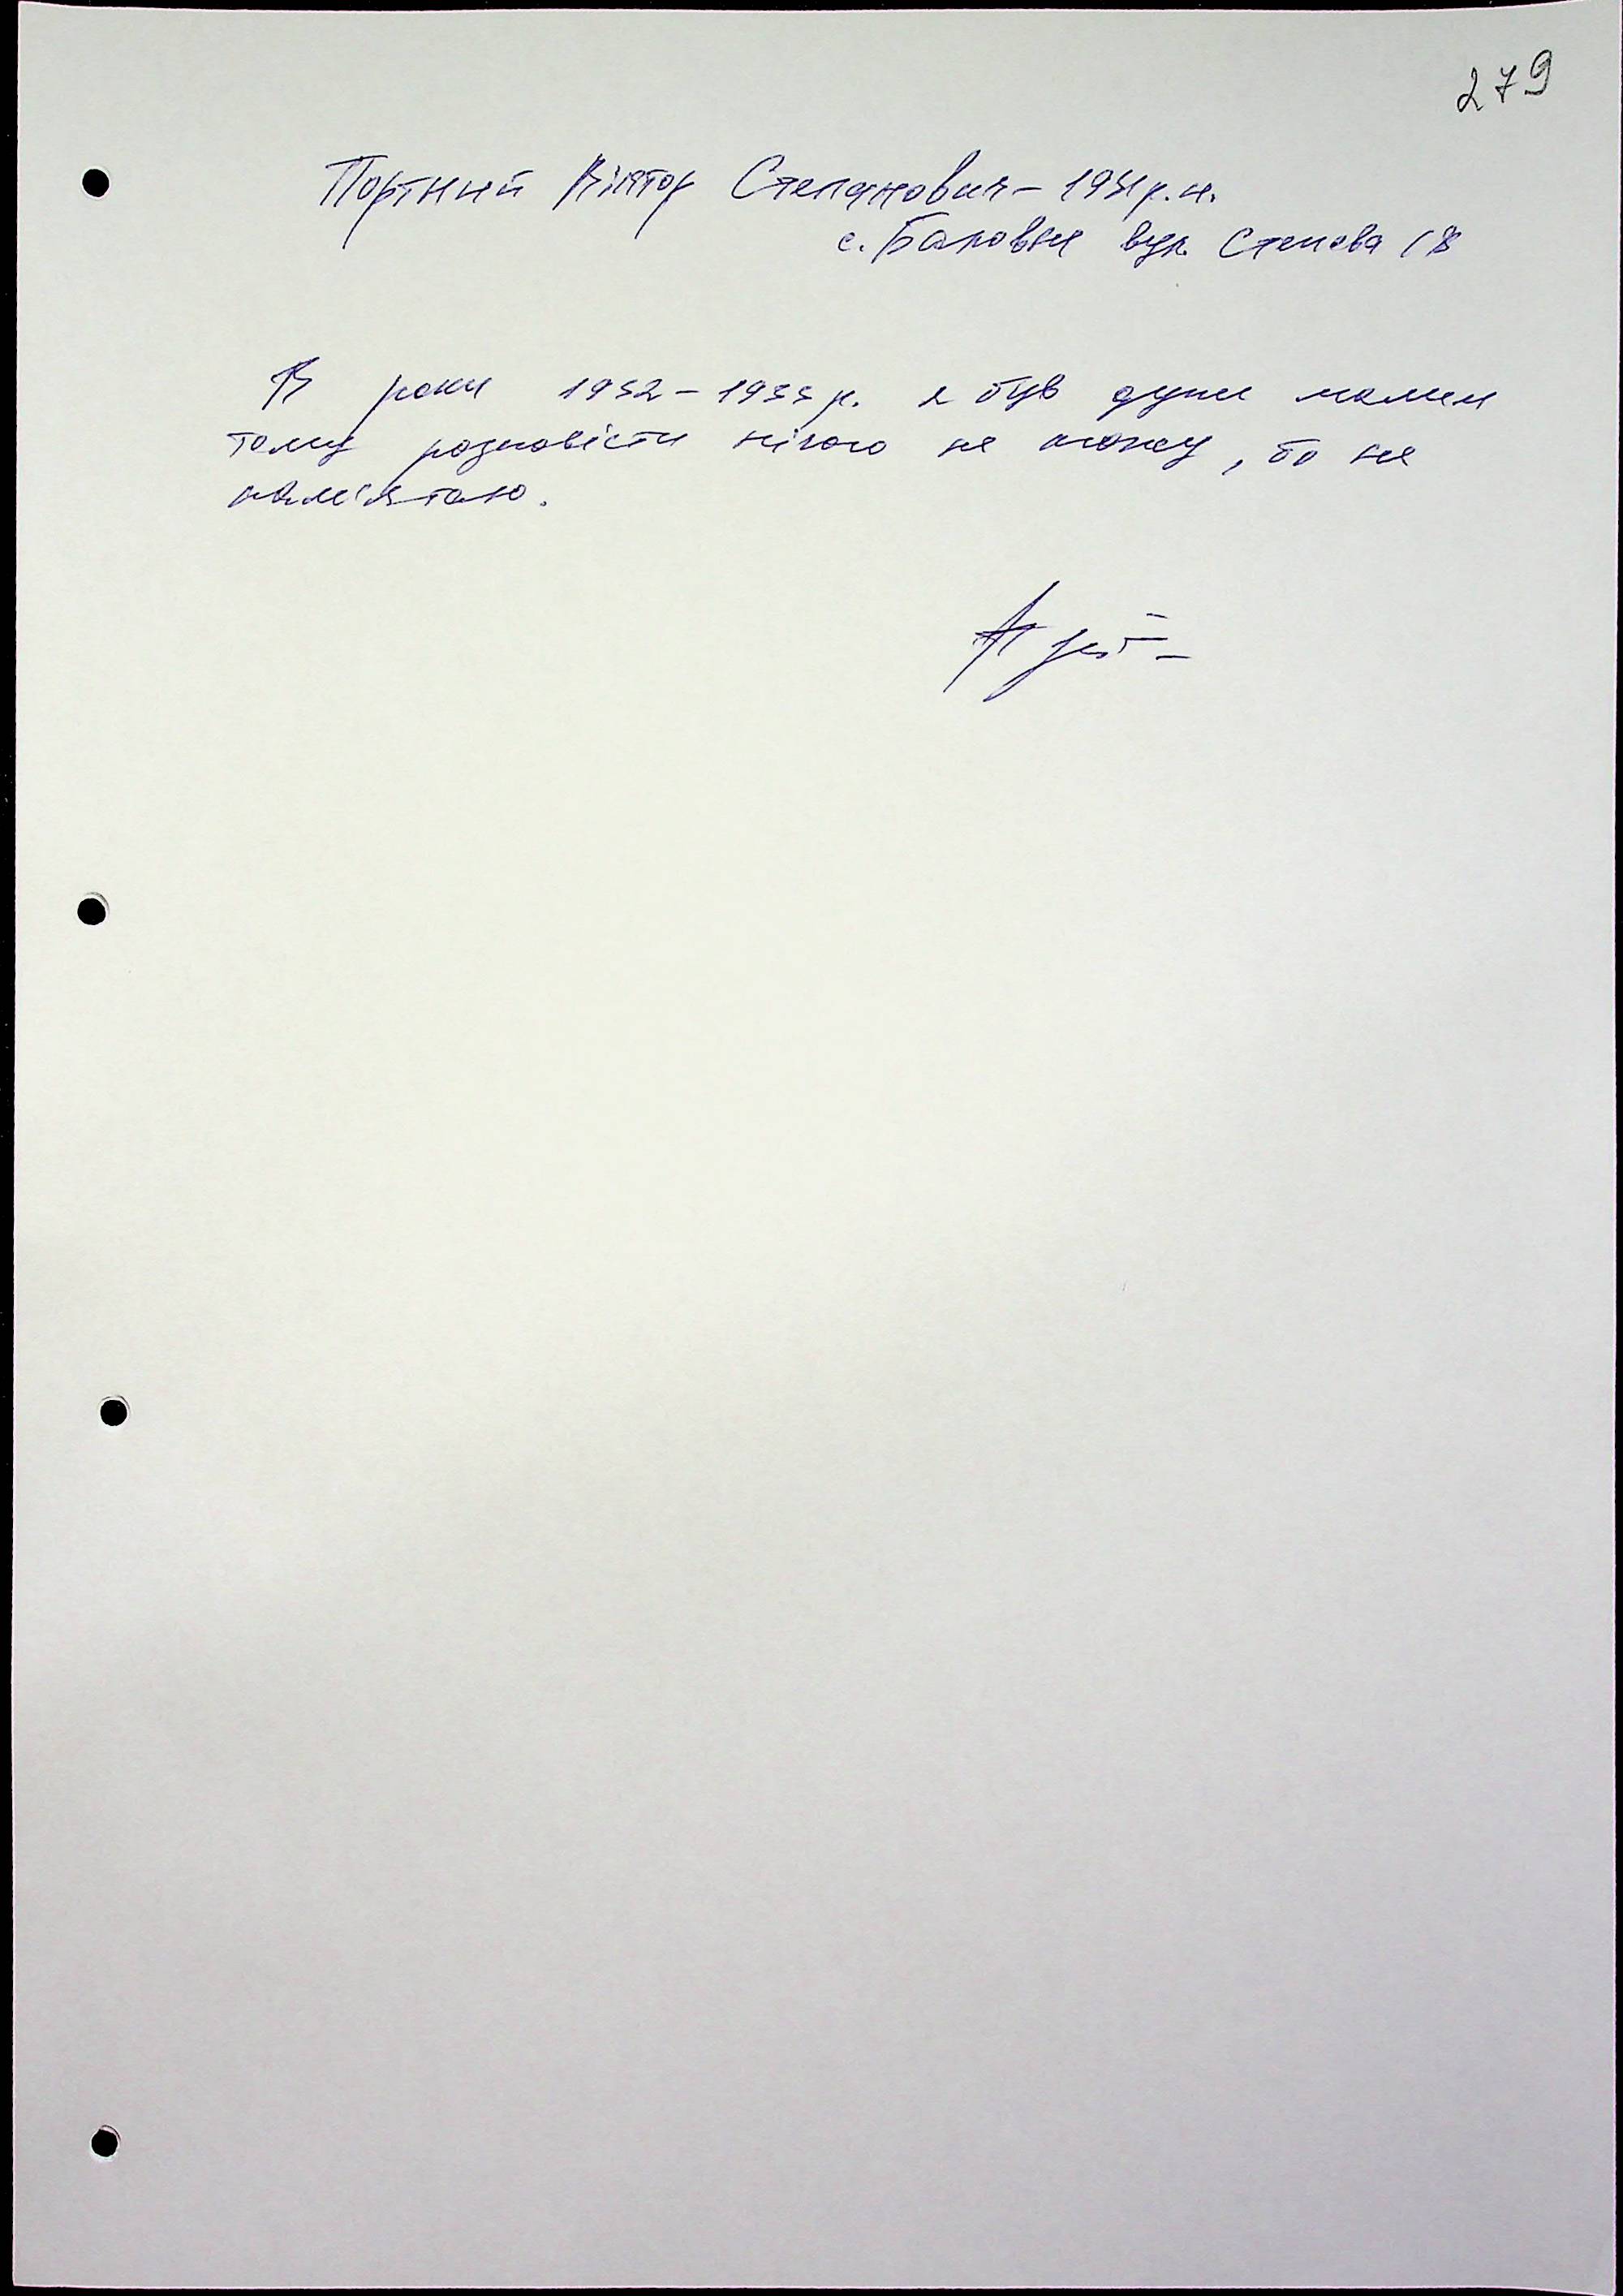 279
Портний Віктор Степанович - 1931 р.н.
с. Баловне вул. Степова 18
В роки 1932-1933 р. я був дуже малим
тому розповісти нічого не можу, бо не
пам'ятаю.